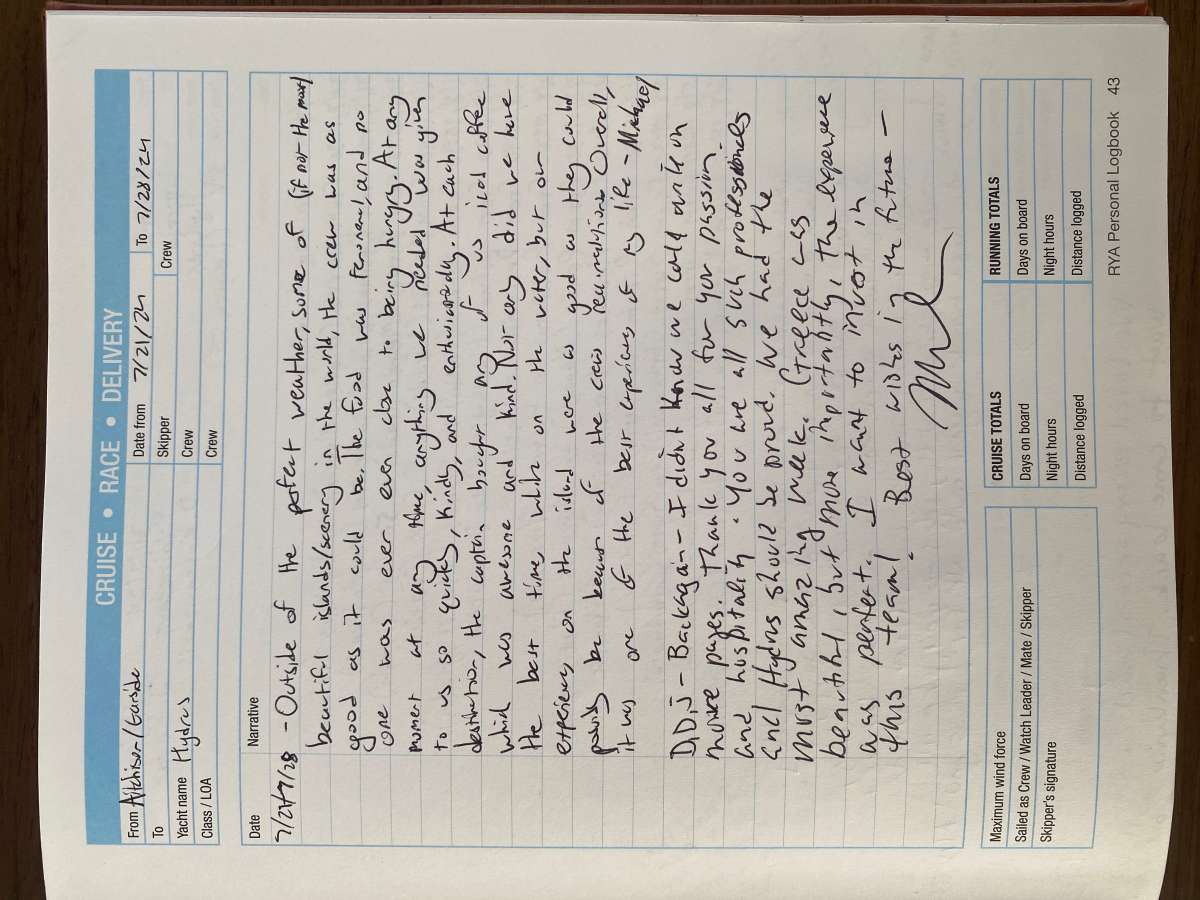 CRUISE • RACE • DELIVERY
From Aitchison/Garside
Date from 7/21/24
To 7/28/24
To
Skipper
Yacht name Hydrus
Crew
Crew
Class / LOA
Crew
Date
Narrative
7/21-7/28 - Outside of the perfect weather, some of (if not the most)
beautiful islands/scenery in the world, the crew was as
good as it could be. The food was fenomenal, and no
one was ever even close to being hungry. At any
moment at any time, anything we needed was given
to us so quickly, kindly, and enthusiastically. At each
destination, the captain bought any of us iced coffee
which was awesome and kind. Not only did we have
the best time while on the water, but our
experiences on the island were as good as they could
possibly be because of the crews recomendations. Overall,
it was one of the best experiences of my life - Michael
D,D,J - Back again - I didn't know we could write on
more pages. Thank you all for your passion
and hospitality. You are all such professionals
and Hydrus should be proud. We had the
most amazing week. Greece was
beautiful, but more importantly, the experience
was perfect. I want to invest in
this team! Best wishes in the future —
Maximum wind force
Sailed as Crew / Watch Leader / Mate / Skipper
Skipper's signature
CRUISE TOTALS
Days on board
Night hours
Distance logged
RUNNING TOTALS
Days on board
Night hours
Distance logged
RYA Personal Logbook 43